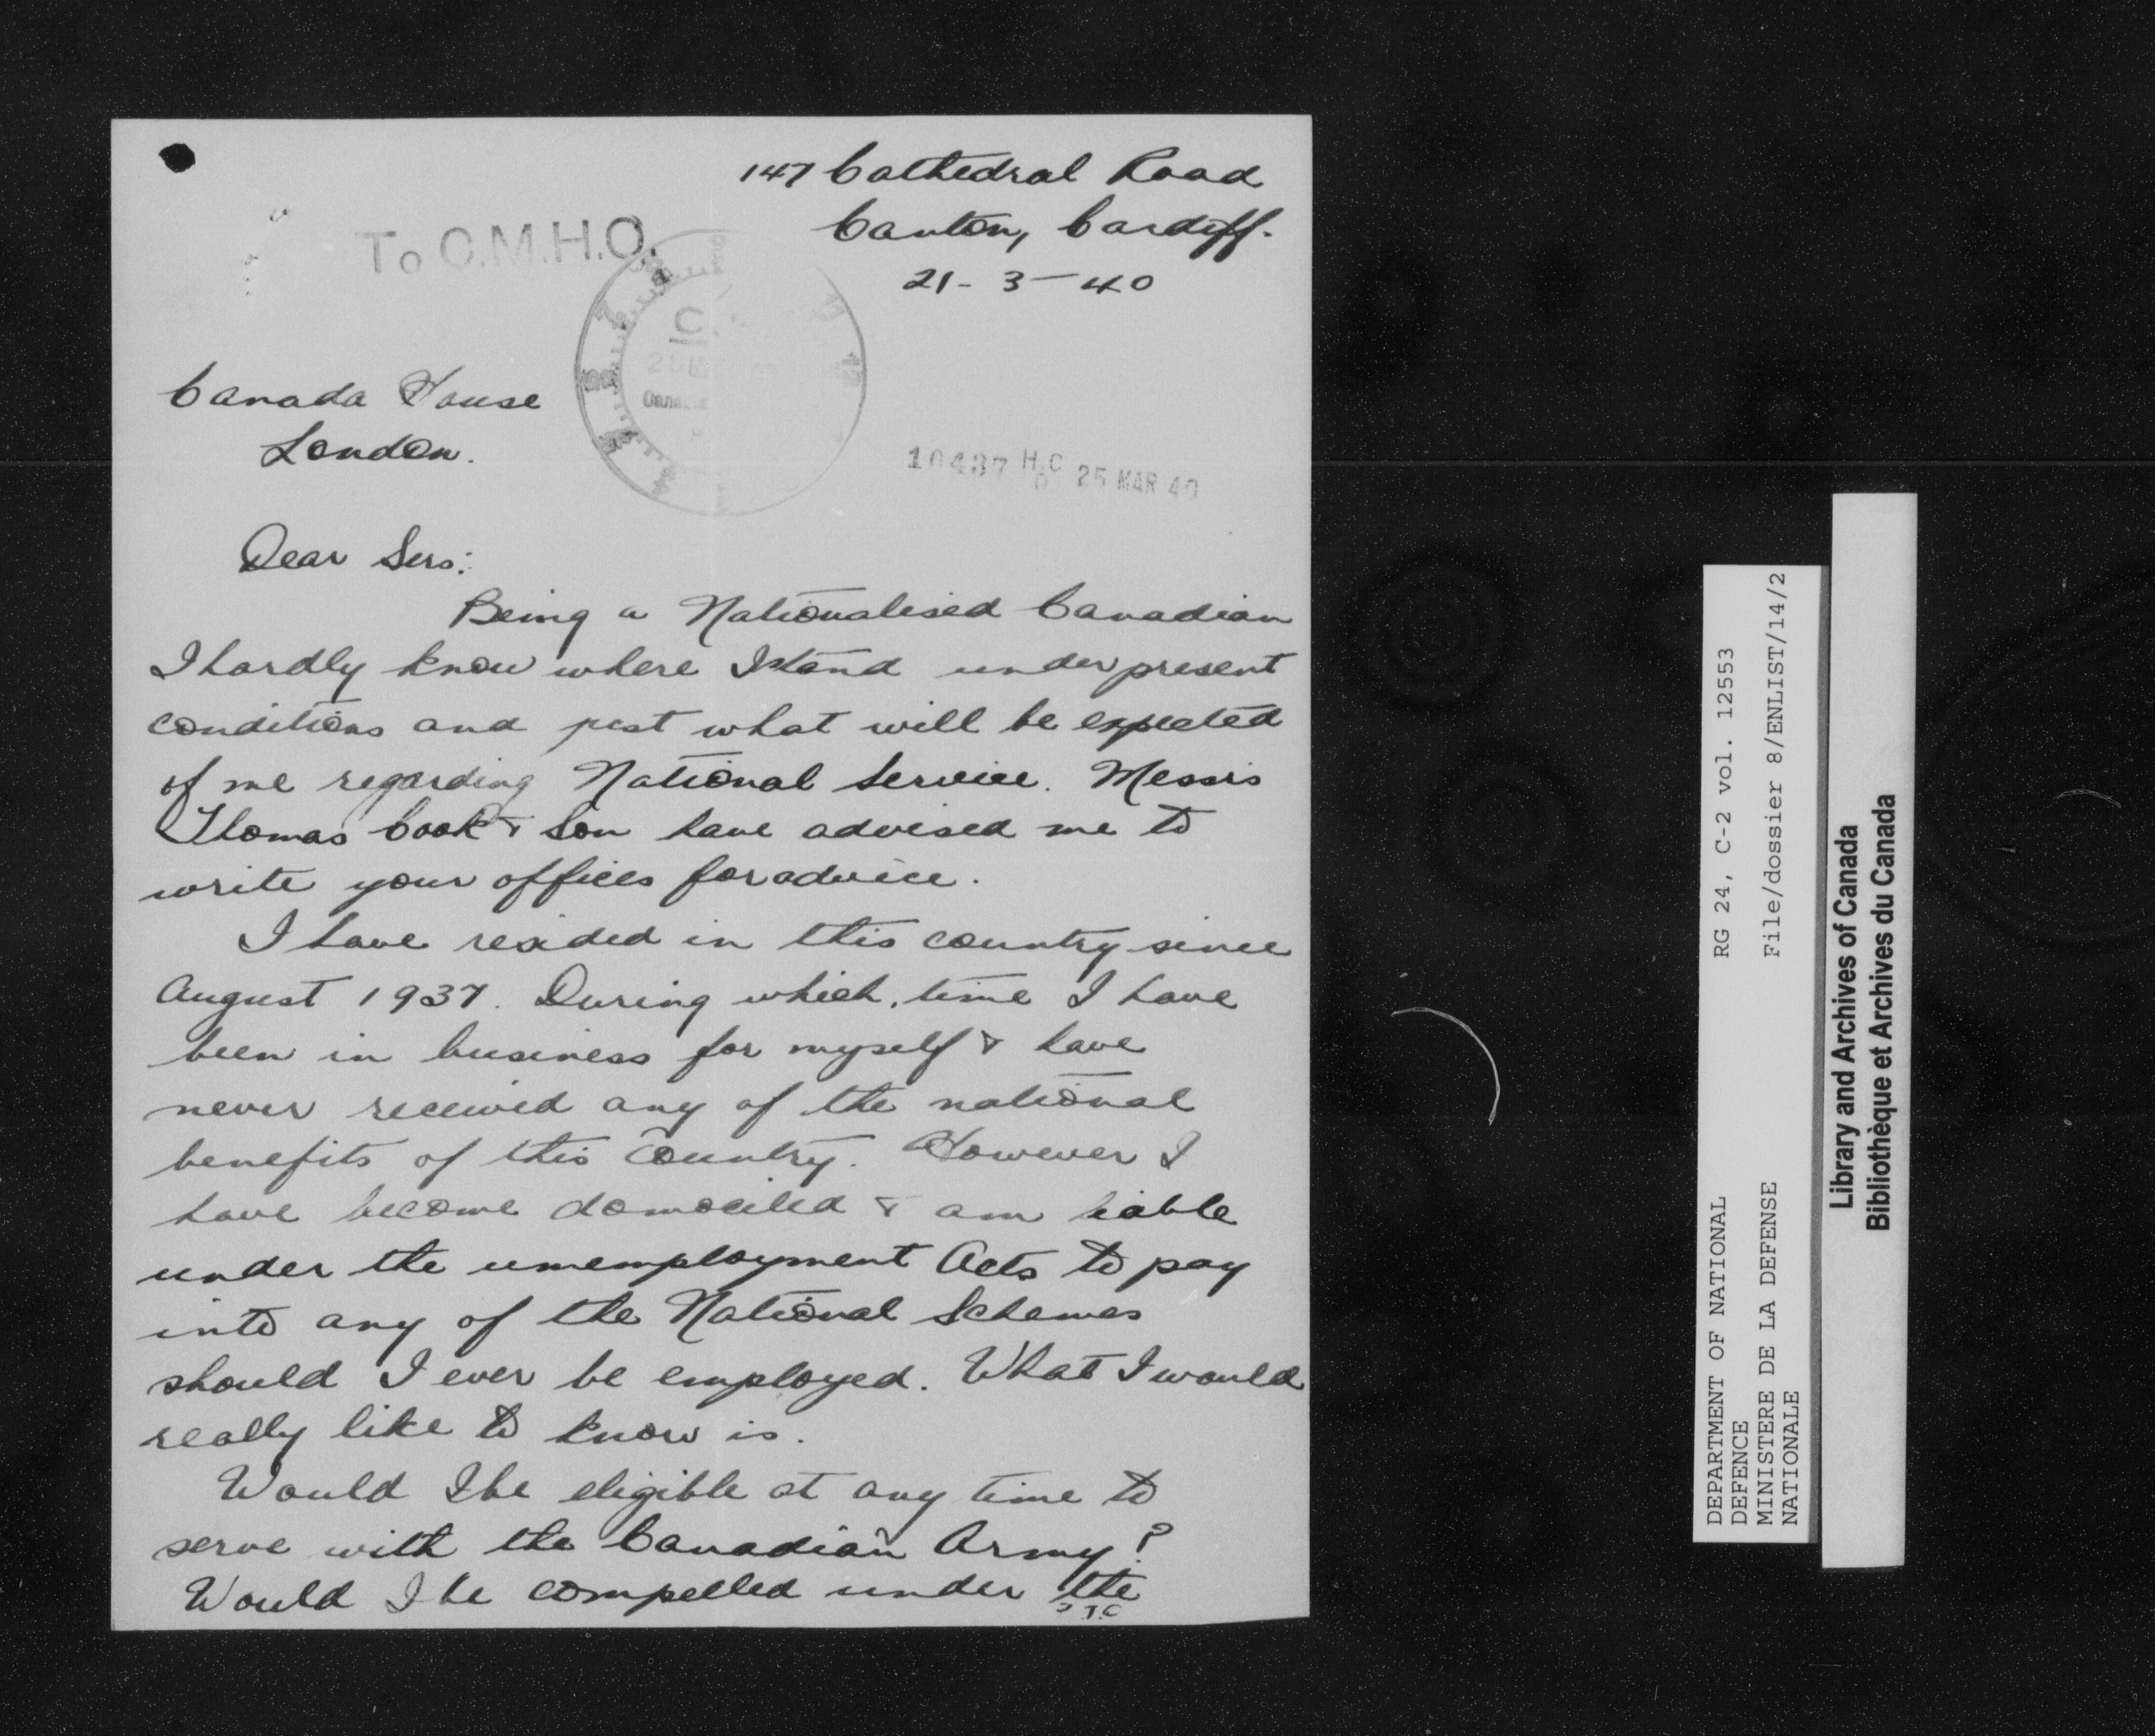 147 Cathedral Road
Canton, Cardiff.
21-3-40
To C.M.H.Q.
Canada House
London.
10437 H.C.O 25 MAR 40
Dear Sirs:
Being a Nationalised Canadian
I hardly know where I stand under present
conditions and just what will be expected
of me regarding National Service. Messrs
Thomas Cook & Son have advised me to
write your offices for advice.
I have resided in this country since
August 1937. During which, time I have
been in business for myself & have
never received any of the national
benefits of this Country. However I
have become domociled & am liable
under the unemployment Acts to pay
into any of the National Schemes
should I ever be employed. What I would
really like to know is.
Would I be eligible at any time to
serve with the Canadian Army?
Would I be compelled under the
P.T.O
DEPARTMENT OF NATIONAL RG 24, C-2 vol. 12553
DEFENCE
MINISTERE DE LA DEFENSE File/dossier 8/ENLIST/14/2
NATIONALE
Library and Archives of Canada
Bibliothèque et Archives du Canada